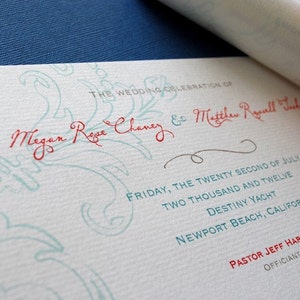 The wedding celebration of
Megan Rose Chaney & Matthew Russell
Friday, the twenty second of July
two thousand and twelve
Destiny Yacht
Newport Beach, Califor
Pastor Jeff Har
Officiant